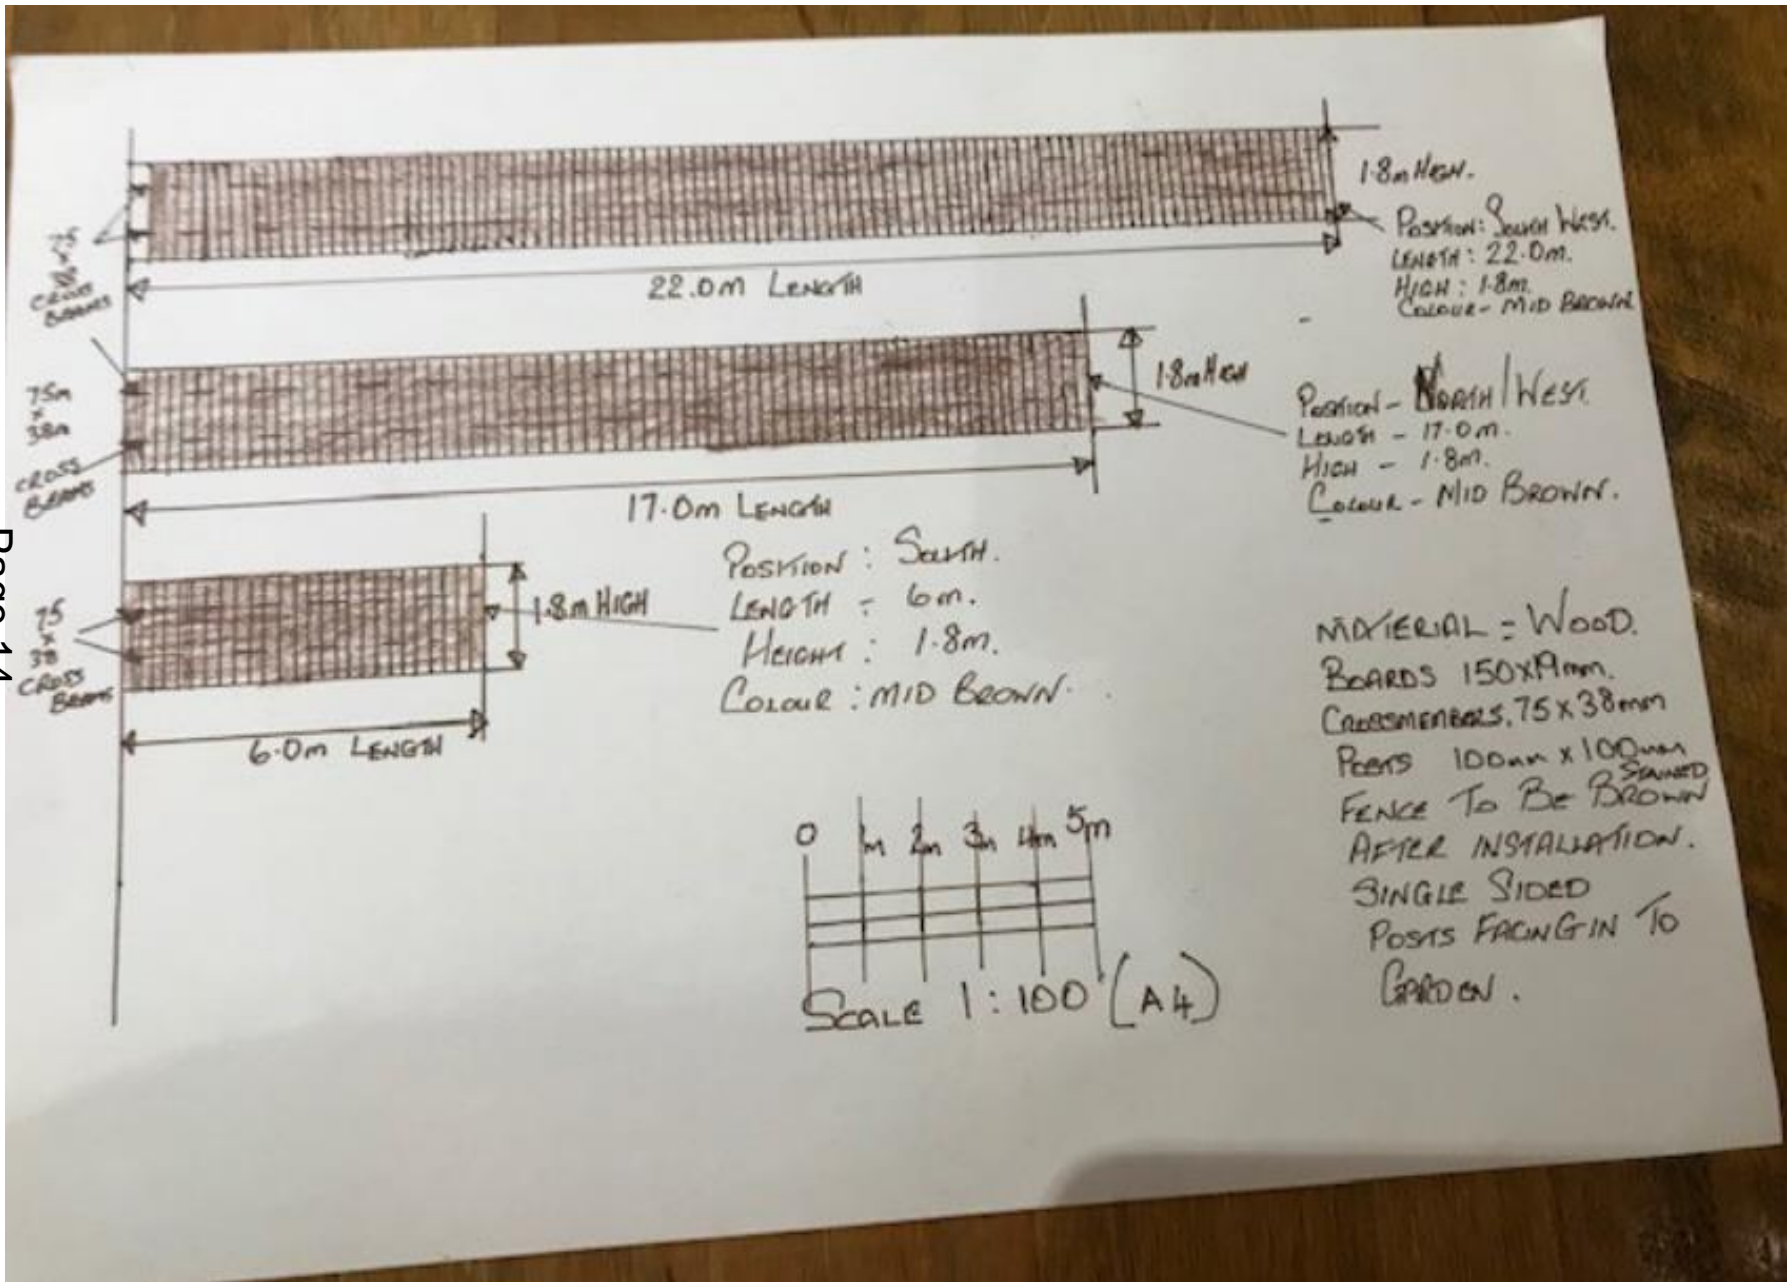 1.8m HIGH.
75
x
38
CROSS
BEAMS
22.0m LENGTH
POSITION: SOUTH WEST.
LENGTH: 22.0m.
HIGH: 1.8m.
COLOUR - MID BROWN
75m
x
38m
CROSS
BEAMS
1.8m HIGH
17.0m LENGTH
POSITION - NORTH/WEST.
LENGTH - 17.0m.
HIGH - 1.8m.
COLOUR - MID BROWN.
75
x
38
CROSS
BEAMS
1.8m HIGH
6.0m LENGTH
POSITION: SOUTH.
LENGTH - 6m.
HEIGHT: 1.8m.
COLOUR: MID BROWN.
MATERIAL = WOOD.
BOARDS 150x19mm.
CROSSMEMBERS. 75x38mm
POSTS 100mm x 100mm
STAINED
FENCE TO BE BROWN
AFTER INSTALLATION.
SINGLE SIDED
POSTS FACING IN TO
GARDEN.
0 1m 2m 3m 4m 5m
SCALE 1:100 (A4)
Page 14